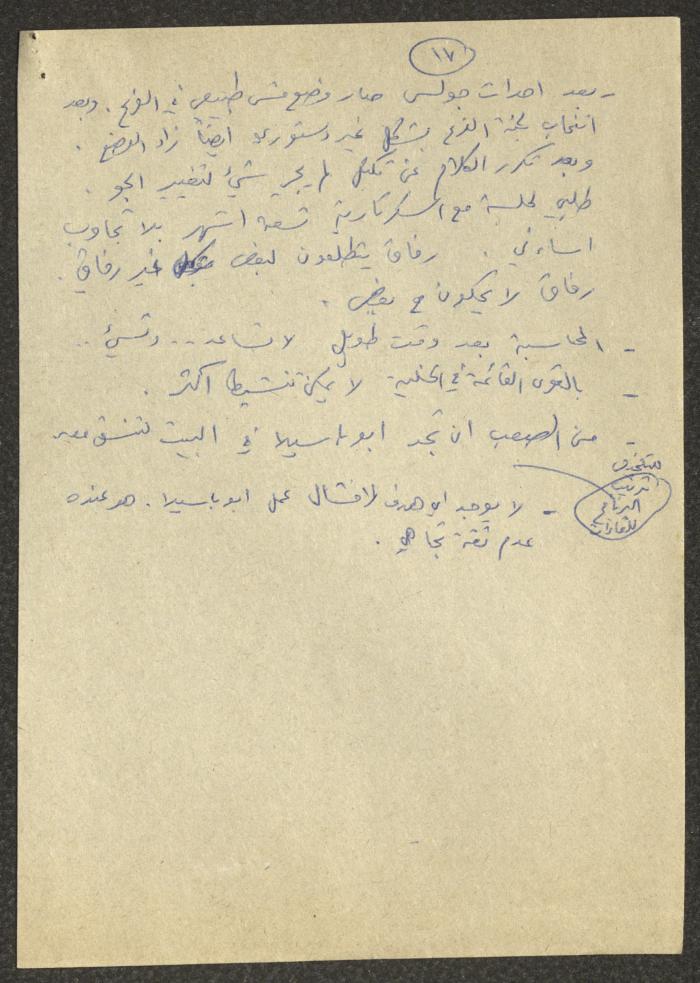 ١٧
- بعد احداث جولس صار وضع مش طبيعي في الفرع. وبعد
انتخاب لجنة الفرع بشكل غير دستوري ايضاً زاد الوضع.
وبعد تكرر الكلام عن تكتل لم يجر شيء لتغيير الجو.
طلبي لجلسة مع السكرتارية تسعة اشهر بلا تجاوب
اساءني. رفاق يتطلعون لبعض غير رفاق.
رفاق لا يحكون مع بعض.
- المحاسبة بعد وقت طويل لا تساعد.. وتسيء..
- بالقوى القائمة في الخلية لا يمكن تنشيطها اكثر.
- من الصعب ان تجد ابو باسيلا في البيت لتنسق معه
ترتيب
البرنامج
للقاءات
- لا يوجد اي هدف لافشال عمل ابو باسيلا. هو عنده
عدم ثقة تجاهي.